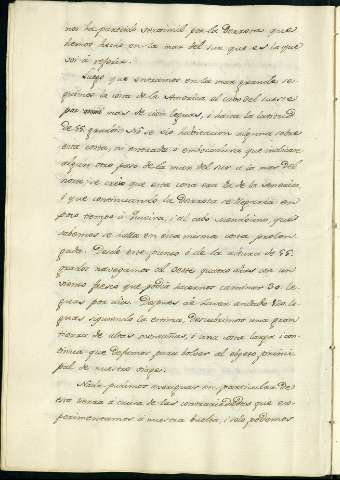 nos ha parecido racional por la Derrota que
hemos hecho en la mar del sur que es la que
voi à referir.
Luego que entramos en la mar grande se-
guimos la costa de la America al cabo del sueste
por mas de cien leguas, i hasta la latitud
de 55 grados Nò se viò habitacion alguna sobre
esta costa, ni entrada o embocadura que indicase
algun otro paso de la mar del sur à la mar del
norte; se creio que esta costa era la de la America,
i que continuando la Derrota se llegaria en
poco tiempo à Quivira, i al cabo Mendocino que
sabemos se halla en esta misma costa prolon-
gada. Desde este punto ô de la altura de 55.
grados navegamos al Oeste quatro dias con un
viento fresco que podia hacernos caminar 30. le-
guas por dia. Despues de haver andado 120. le-
guas siguiendo la estima, descubrimos una gran
tierra de altas montañas, i una costa larga i con-
tinua que dejamos para bolver al objeto princi-
pal de nuestro viage.
Nada pudimos averiguar en particular de
esta tierra à causa de las contrariedades que ex-
perimentamos à nuestra buelta, i solo podemos